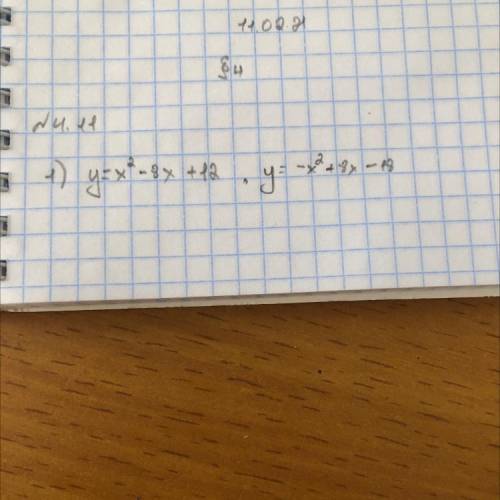 11.02.21
§4
№4.11
1) y=x²-8x+12, y=-x²+8x-18